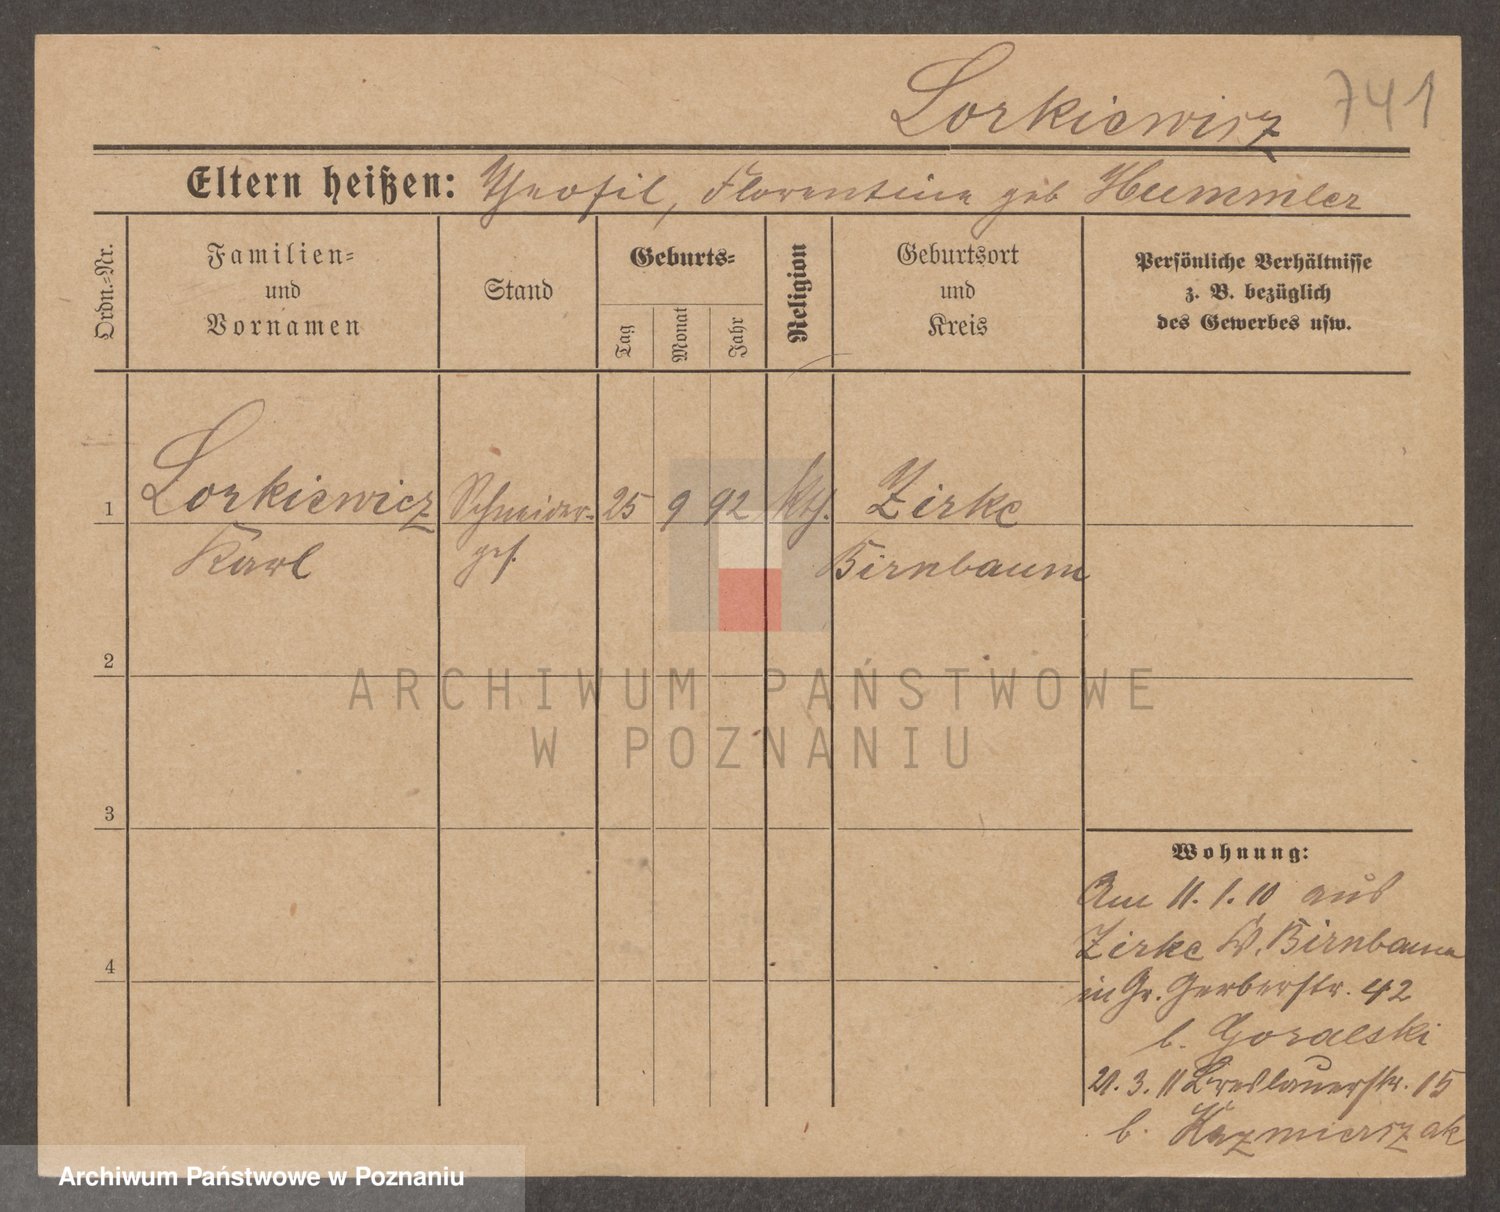 Lorkiewicz 741
Eltern heißen: Theofil, Florentina geb Hummler
Ordn.-Nr.
Familien-
und
Vornamen
Stand
Geburts-
Tag
Monat
Jahr
Religion
Geburtsort
und
Kreis
Persönliche Verhältnisse
z. B. bezüglich
des Gewerbes usw.
1 Lorkiewicz Schneider- 25 9 92 kth. Zirke
Karl ges. Birnbaum
2
3
4
Wohnung:
Am 11. 1. 10 aus
Zirke K. Birnbaum
in Gr. Gerberstr. 42
b. Goralski
21. 3. 11 Breslauerstr. 15
b. Kazmierszak
ARCHIWUM PAŃSTWOWE
W POZNANIU
Archiwum Państwowe w Poznaniu